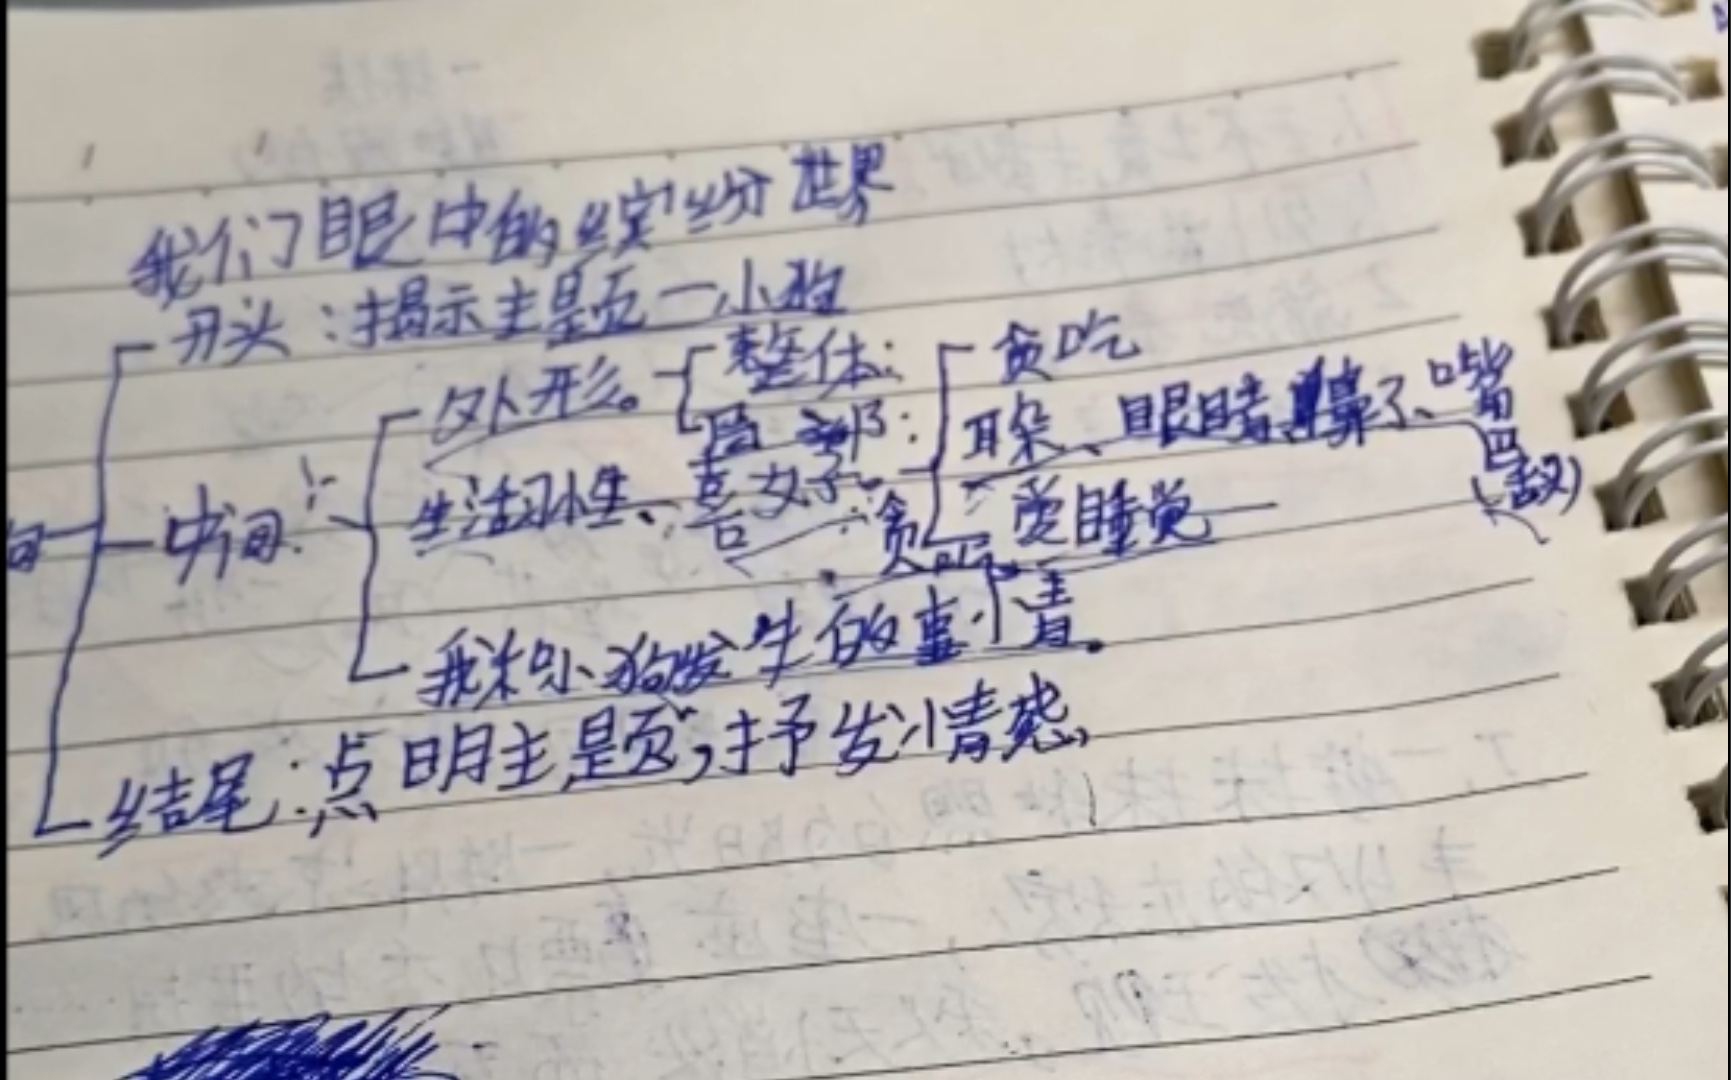 我们眼中的缤纷世界
开头：揭示主题一小狗
外形。 整体： 贪吃
局部： 耳朵、眼睛、鼻子、嘴巴
生活习性、喜好。 贪吃 爱睡觉
中间：
我和小狗发生的事情。
结尾：点明主题，抒发情感、